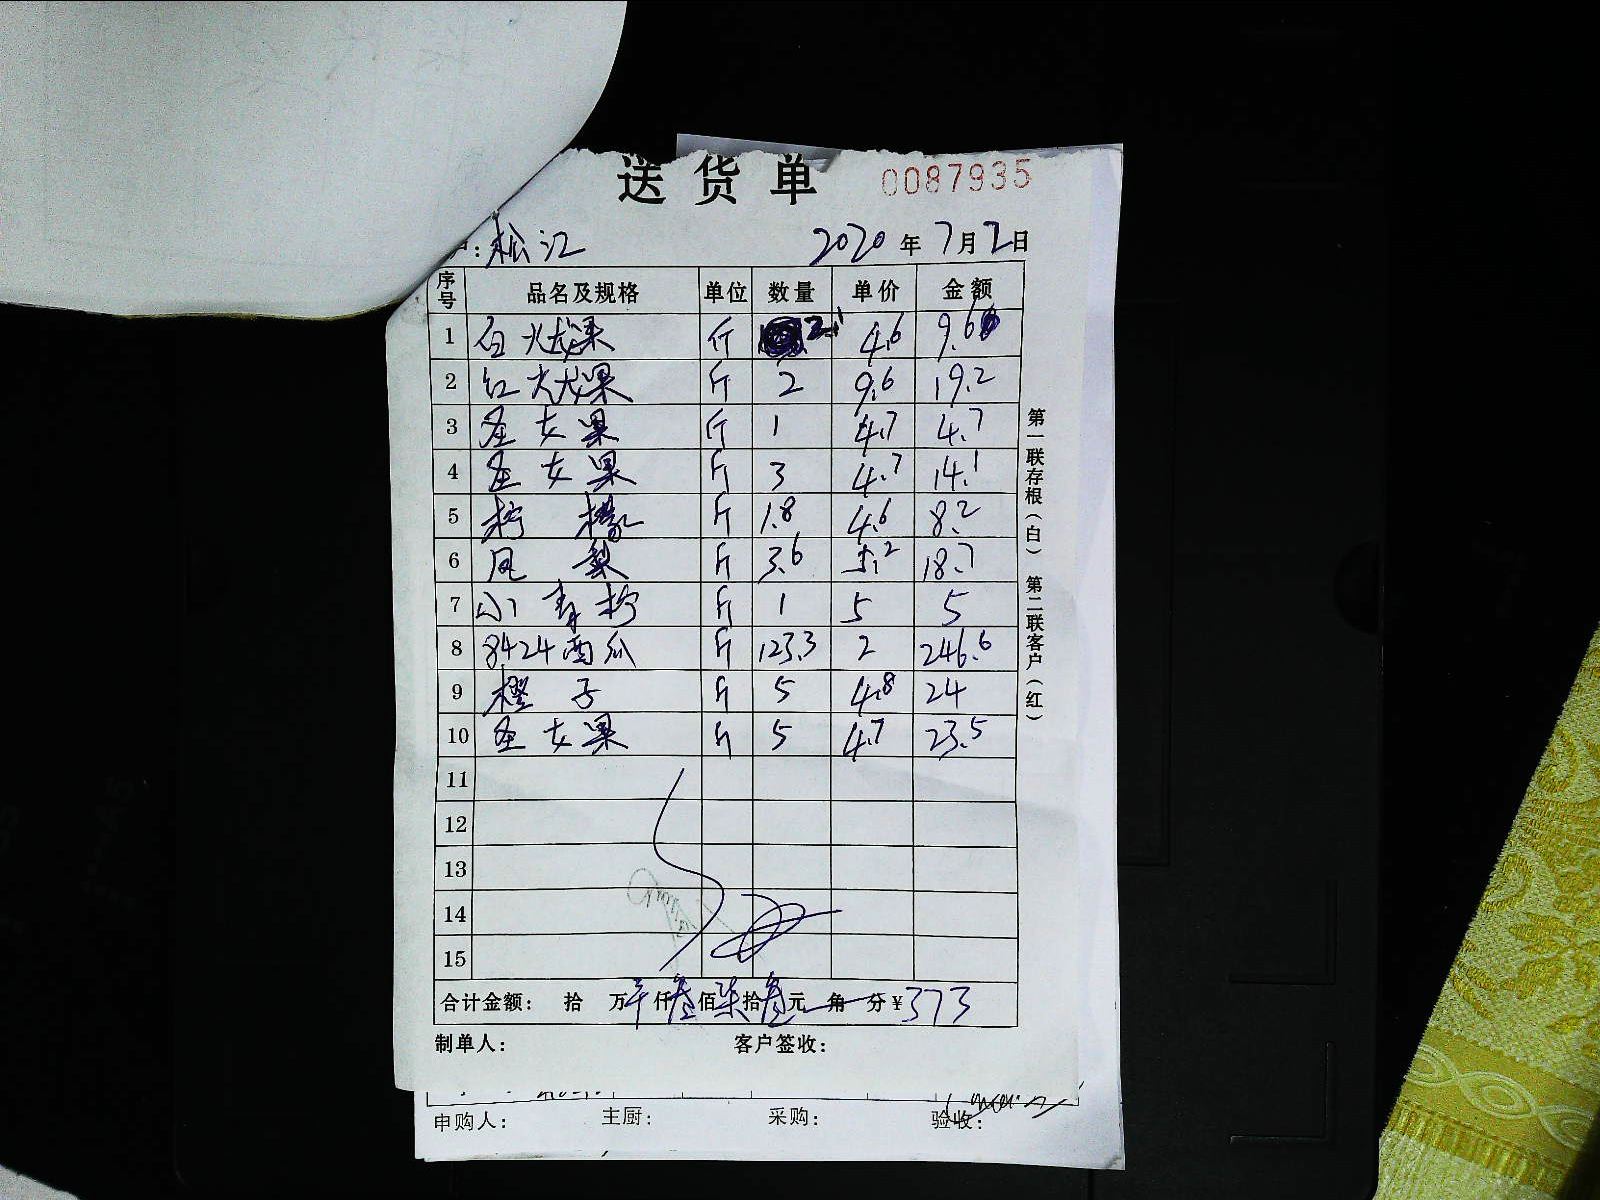 送货单 0087935
：松江 2020年7月2日
序号 品名及规格 单位 数量 单价 金额
1 白火龙果 斤 2.1 4.6 9.6
2 红火龙果 斤 2 9.6 19.2
3 圣女果 斤 1 4.7 4.7
4 圣女果 斤 3 4.7 14.1
5 柠檬 斤 1.8 4.6 8.2
6 凤梨 斤 3.6 5.2 18.7
7 小青柠 斤 1 5 5
8 8424西瓜 斤 123.3 2 246.6
9 橙子 斤 5 4.8 24
10 圣女果 斤 5 4.7 23.5
11
12
13
14
15
合计金额： 拾 万 仟叁佰柒拾叁元 角 分¥373
制单人： 客户签收：
申购人： 主厨： 采购： 验收：
第一联存根（白） 第二联客户（红）